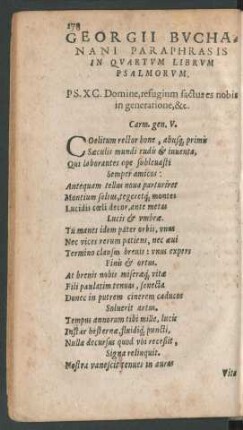 GEORGII BVCHA-
NANI PARAPHRASIS
IN QVARTVM LIBRVM
PSALMORVM.
PS. XC. Domine, refugium factus es nobis
in generatione, &c.
Carm. gen. V.
COelitum rector bone, abusque primis
Sæculis mundi rudis & inventa,
Qui laborantes ope subleuasti
Semper amicos:
Antequam tellus noua parturiret
Montium saltus, tegeretque montes
Lucidis cœli decor, ante metas
Lucis & vmbræ.
Tu manes idem pater orbis, vnus
Nec vices rerum patiens, nec æui
Termino clausus breuis: vnus expers
Finis & ortus.
At breuis nobis miseræque vitæ
Fili paulatim tenuat, senecta
Donec in putrem cinerem caducos
Soluerit artus.
Tempus annorum tibi mille, lucis
Instar hesternæ, fluidique puncti,
Nulla decursus quod vbi recessit,
Signa relinquit.
Nostra vanescit tenues in auras
Vita